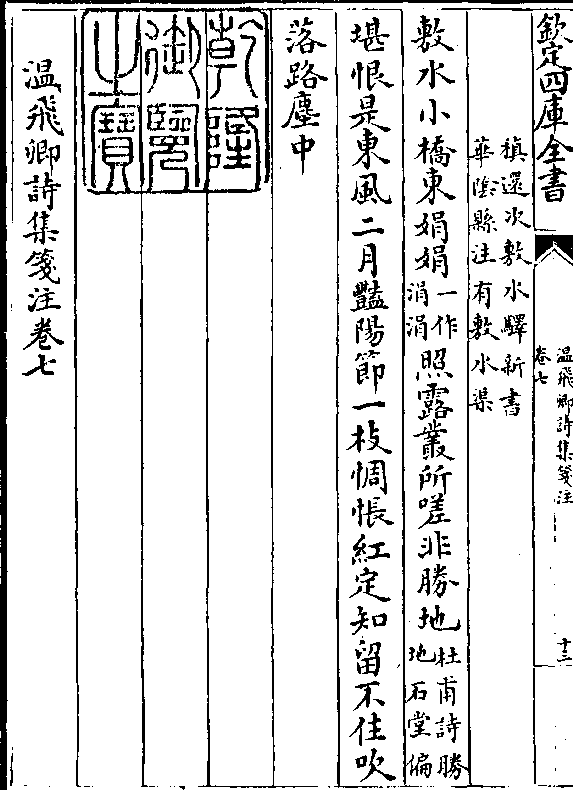 欽定四庫全書
温飛卿詩集箋注
卷七
十三
稹還次敷水驛新書
華陰縣注有敷水渠
敷水小橋東娟娟一作涓涓照露叢所嗟非勝地杜甫詩勝地石堂偏
堪恨是東風二月豔陽節一枝惆悵紅定知留不住吹
落路塵中
乾隆御覽之寶
温飛卿詩集箋注卷七